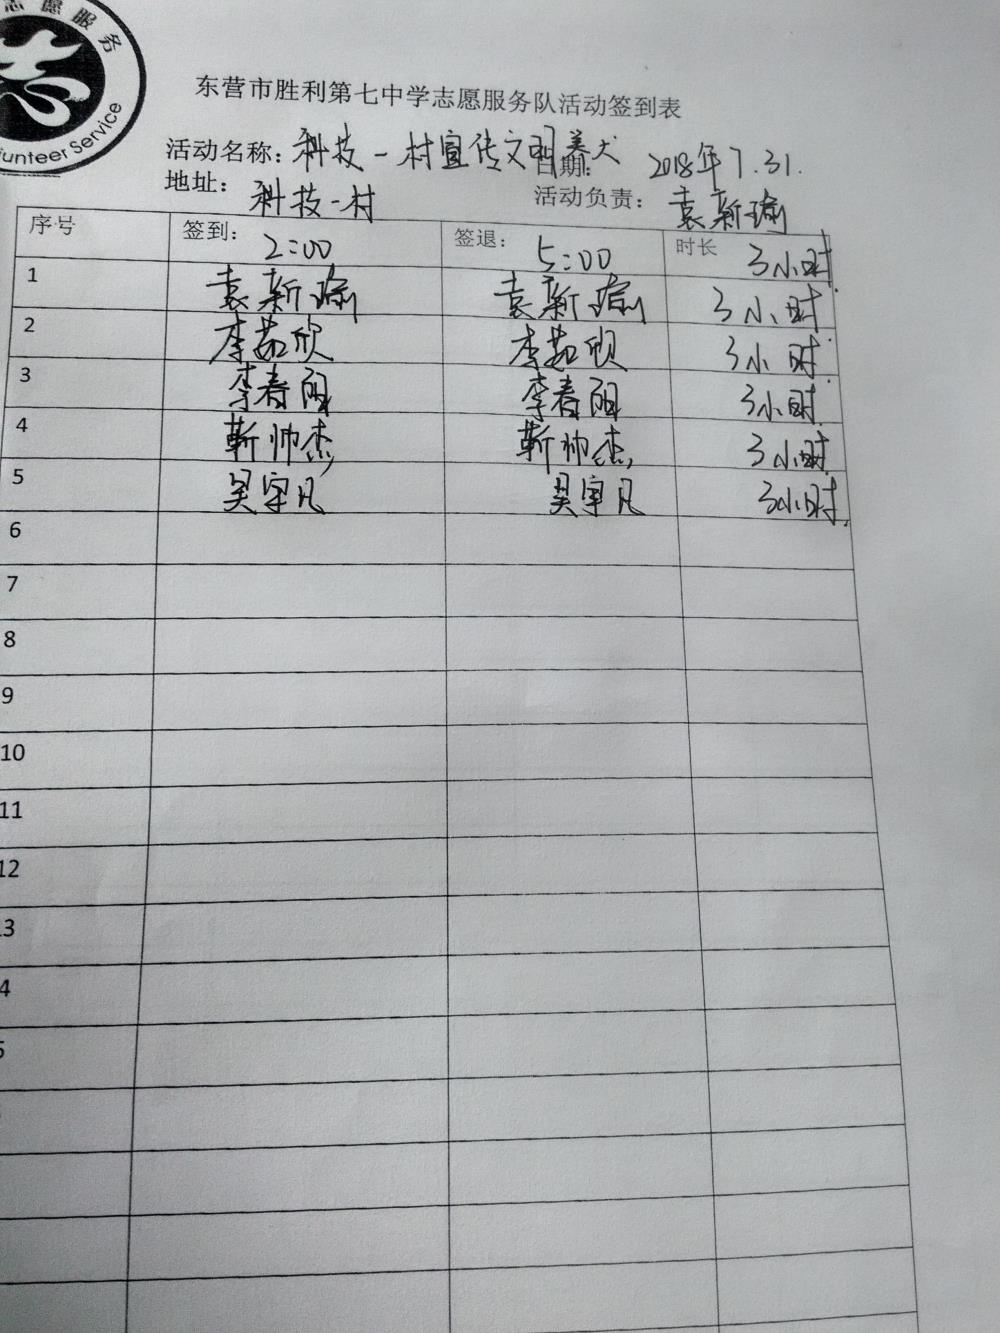 志愿服务
Volunteer Service
东营市胜利第七中学志愿服务队活动签到表
活动名称：科技一村宣传文明养犬 日期：2018年7.31.
地址：科技一村 活动负责：袁新瑜
序号 签到：2:00 签退：5:00 时长 3小时.
1 袁新瑜 袁新瑜 3小时
2 李茹欣 李茹欣 3小时.
3 李春阳 李春阳 3小时.
4 靳帅杰 靳帅杰 3小时.
5 吴宇凡 吴宇凡 3小时.
6
7
8
9
10
11
12
13
4
5